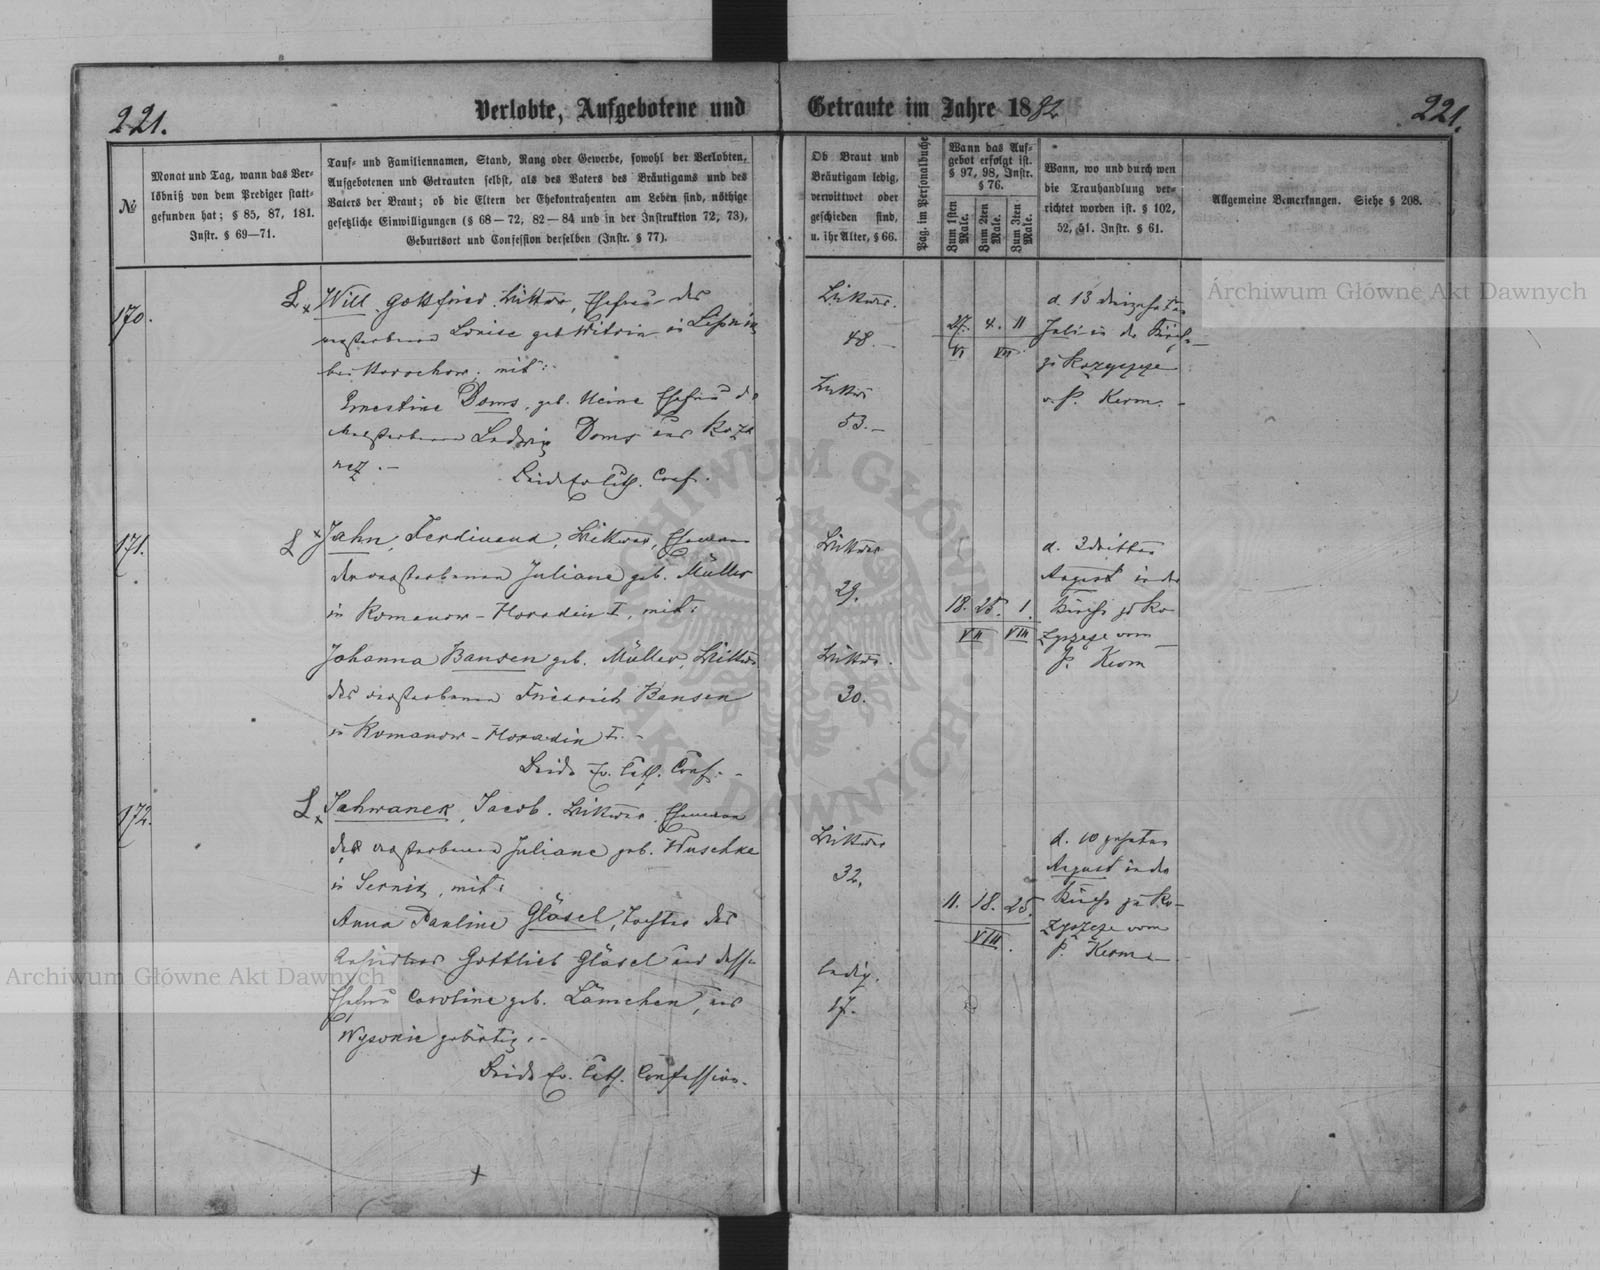 221.
Verlobte, Aufgebotene und
Getraute im Jahre 1882
221.
№
Monat und Tag, wann das Ver-
löbniß von dem Prediger statt-
gefunden hat; § 85, 87, 181.
Instr. § 69—71.
Tauf- und Familiennamen, Stand, Rang oder Gewerbe, sowohl der Verlobten,
Aufgebotenen und Getrauten selbst, als des Vaters des Bräutigams und des
Vaters der Braut; ob die Eltern der Ehekontrahenten am Leben sind, nöthige
gesetzliche Einwilligungen (§ 68—72, 82—84 und in der Instruktion 72, 73),
Geburtsort und Confession derselben (Instr. § 77).
Ob Braut und
Bräutigam ledig,
verwittwet oder
geschieden sind,
u. ihr Alter, § 66.
Pag. im Personalbuche
Wann das Auf-
gebot erfolgt ist.
§ 97, 98, Instr.
§ 76.
Zum 1sten Male.
Zum 2ten Male.
Zum 3ten Male.
Wann, wo und durch wen
die Trauhandlung ver-
richtet worden ist. § 102,
52, 51. Instr. § 61.
Allgemeine Bemerkungen. Siehe § 208.
170.
Will, Gottfried, Wittwer, des
verstorbenen Louise geb. in
bei Horochow. mit:
Ernestine Doms, geb. Heine
verstorbenen Ludwig Doms aus
Beide Ev. Luth. Conf.
Wittwer.
48.—
53.—
27. 4. 11
VI VII
d. 13
Juli in der Kirche
zu Rozyszcze
v. P. Kerm.
171.
Jahn, Ferdinand, Wittwer,
der verstorbenen Juliane geb. Müller
in Romanow-Horodin I, mit:
Johanna Bansen geb. Müller, Wittwe
des verstorbenen Friedrich Bansen
in Romanow-Horodin I.-
Beide Ev. Luth. Conf.-
Wittwer
29.
Wittwe.
30.
18. 25. 1.
VII VIII
d. 3 dritten
August in der
Kirche zu Ro-
zyszcze vom
P. Kerm
172.
Schwanek, Jacob. Wittwer.
der verstorbenen Juliane geb. Huschke
in Sernik, mit:
Anna Pauline Gläsel, Tochter des
Gottlieb Gläsel und dessen
Ehefrau Caroline geb. Lämchen, aus
gebürtig.-
Beide Ev. Luth. Confession.
Wittwer
32.
ledig.
17.
11. 18. 25.
VIII.
d. 10 zehnten
August in der
Kirche zu Ro-
zyszcze vom
P. Kerm
Archiwum Główne Akt Dawnych
Archiwum Główne Akt Dawnych
ARCHIWUM GŁÓWNE AKT DAWNYCH